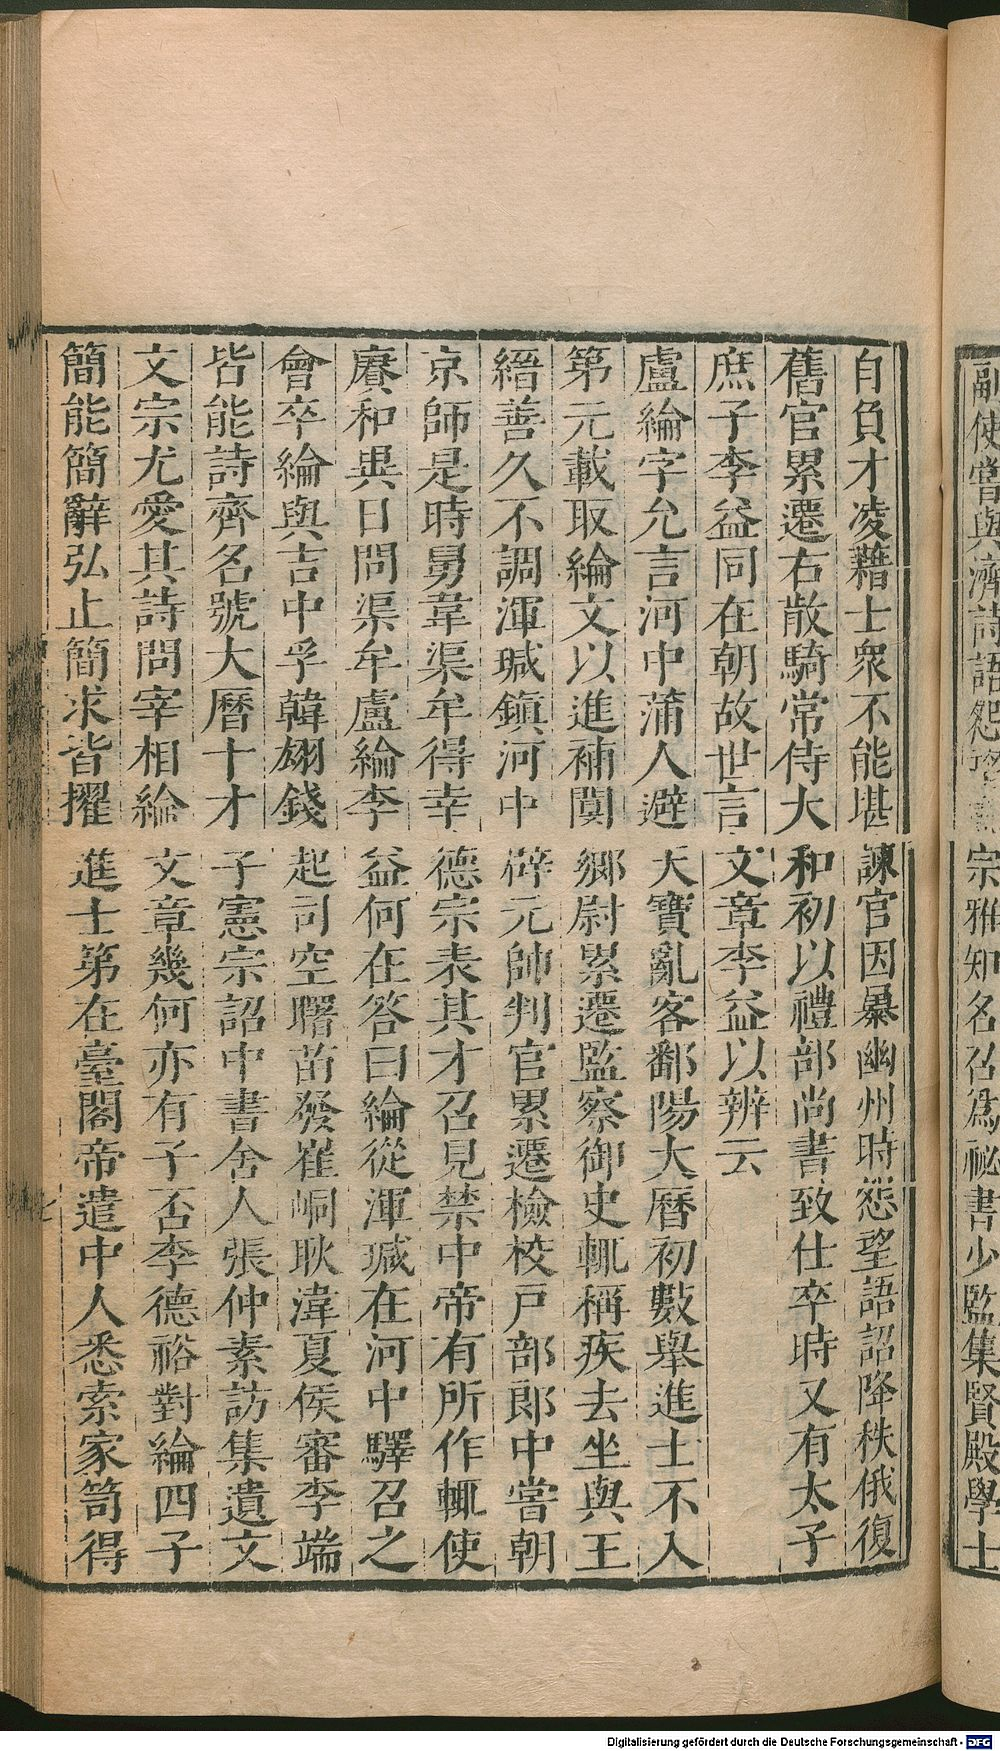 副使嘗與濟詩語怨
宗雅知名召爲祕書少監集賢殿學士
自負才凌藉士衆不能堪諫官因暴幽州時怨望語詔降秩俄復
舊官累遷右散騎常侍大和初以禮部尚書致仕卒時又有太子
庶子李益同在朝故世言文章李益以辨云
盧綸字允言河中蒲人避天寶亂客鄱陽大曆初數舉進士不入
第元載取綸文以進補閿鄉尉累遷監察御史輒稱疾去坐與王
縉善久不調渾瑊鎮河中辟元帥判官累遷檢校戸部郎中嘗朝
京師是時舅韋渠牟得幸德宗表其才召見禁中帝有所作輒使
賡和異日問渠牟盧綸李益何在答曰綸從渾瑊在河中驛召之
會卒綸與吉中孚韓翃錢起司空曙苗發崔峒耿湋夏侯審李端
皆能詩齊名號大曆十才子憲宗詔中書舍人張仲素訪集遺文
文宗尤愛其詩問宰相綸文章幾何亦有子否李德裕對綸四子
簡能簡辭弘止簡求皆擢進士第在臺閣帝遣中人悉索家笥得
Digitalisierung gefördert durch die Deutsche Forschungsgemeinschaft - DFG